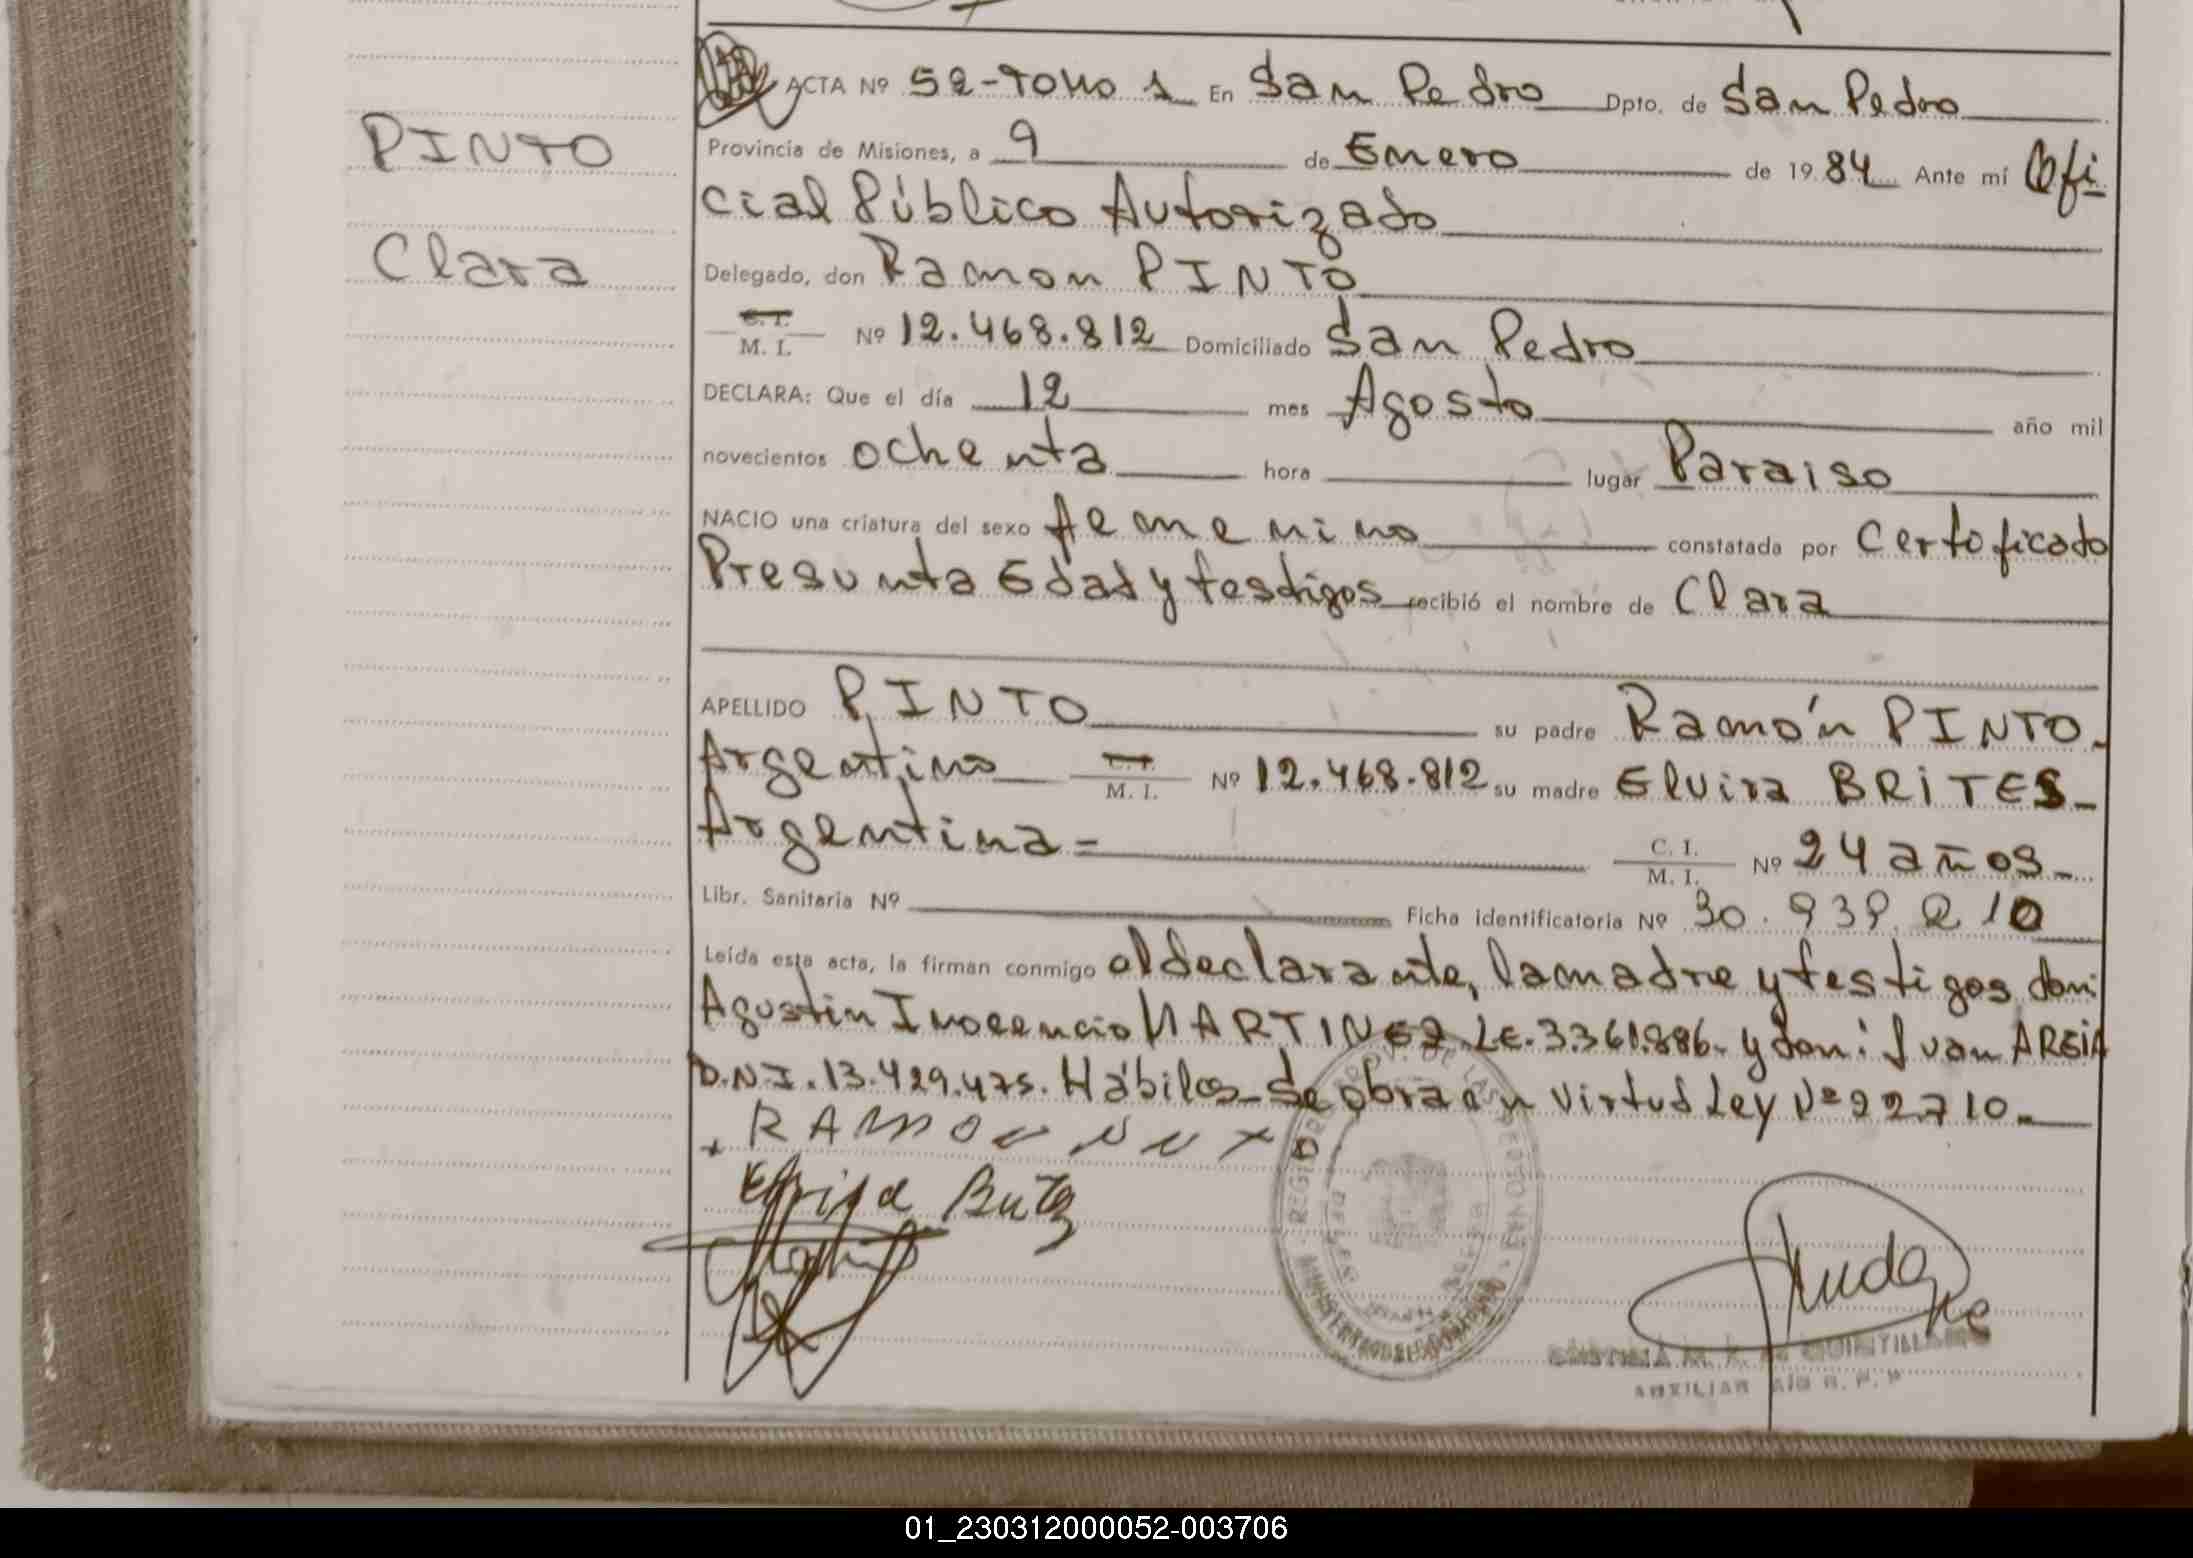 ACTA Nº 52-TOMO 1 En San Pedro Dpto. de San Pedro
PINTO
Provincia de Misiones, a 9 de Enero de 19 84 Ante mí Ofi
cial Público Autorizado
Clara
Delegado, don Ramon PINTO
C. I.
M. I. Nº 12.468.812 Domiciliado San Pedro
DECLARA: Que el día 12 mes Agosto año mil
novecientos ochenta hora lugar Paraiso
NACIO una criatura del sexo femenino constatada por Certificado
Presunta Edad y testigos recibió el nombre de Clara
APELLIDO PINTO su padre Ramón PINTO.
Argentino C. I. M. I. Nº 12.468.812 su madre Elvira BRITES
Argentina= C. I. M. I. Nº 24 años
Libr. Sanitaria Nº Ficha identificatoria Nº 30.939.210
Leída esta acta, la firman conmigo el declarante, la madre y testigos don:
Agustin Inocencio MARTINEZ LE. 3.361.886. y don: Juan
D.N.I. 13.429.475. Hábiles. Se obra en virtud Ley Nº 22710.
RAMON
AUXILIAR
01_230312000052-003706